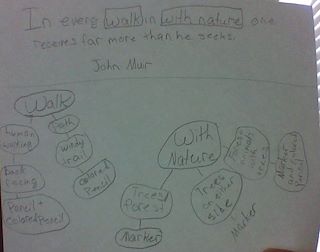 In every walk in with nature one
receives far more than he seeks.
John Muir
Walk
Path
human
walking
windy
trail
back
facing
colored
Pencil
Pencil +
colored Pencil
With
Nature
Trees/
forest
Marker
Trees
on either
side
Marker
trees
Marker
and
Pencil